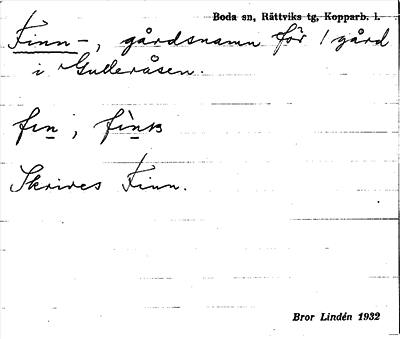 Boda sn, Rättviks tg, Kopparb. l.
Finn-, gårdsnamn för 1 gård
i Gulleråsen.
fin, fìns
Skrives Finn.
Bror Lindén 1932